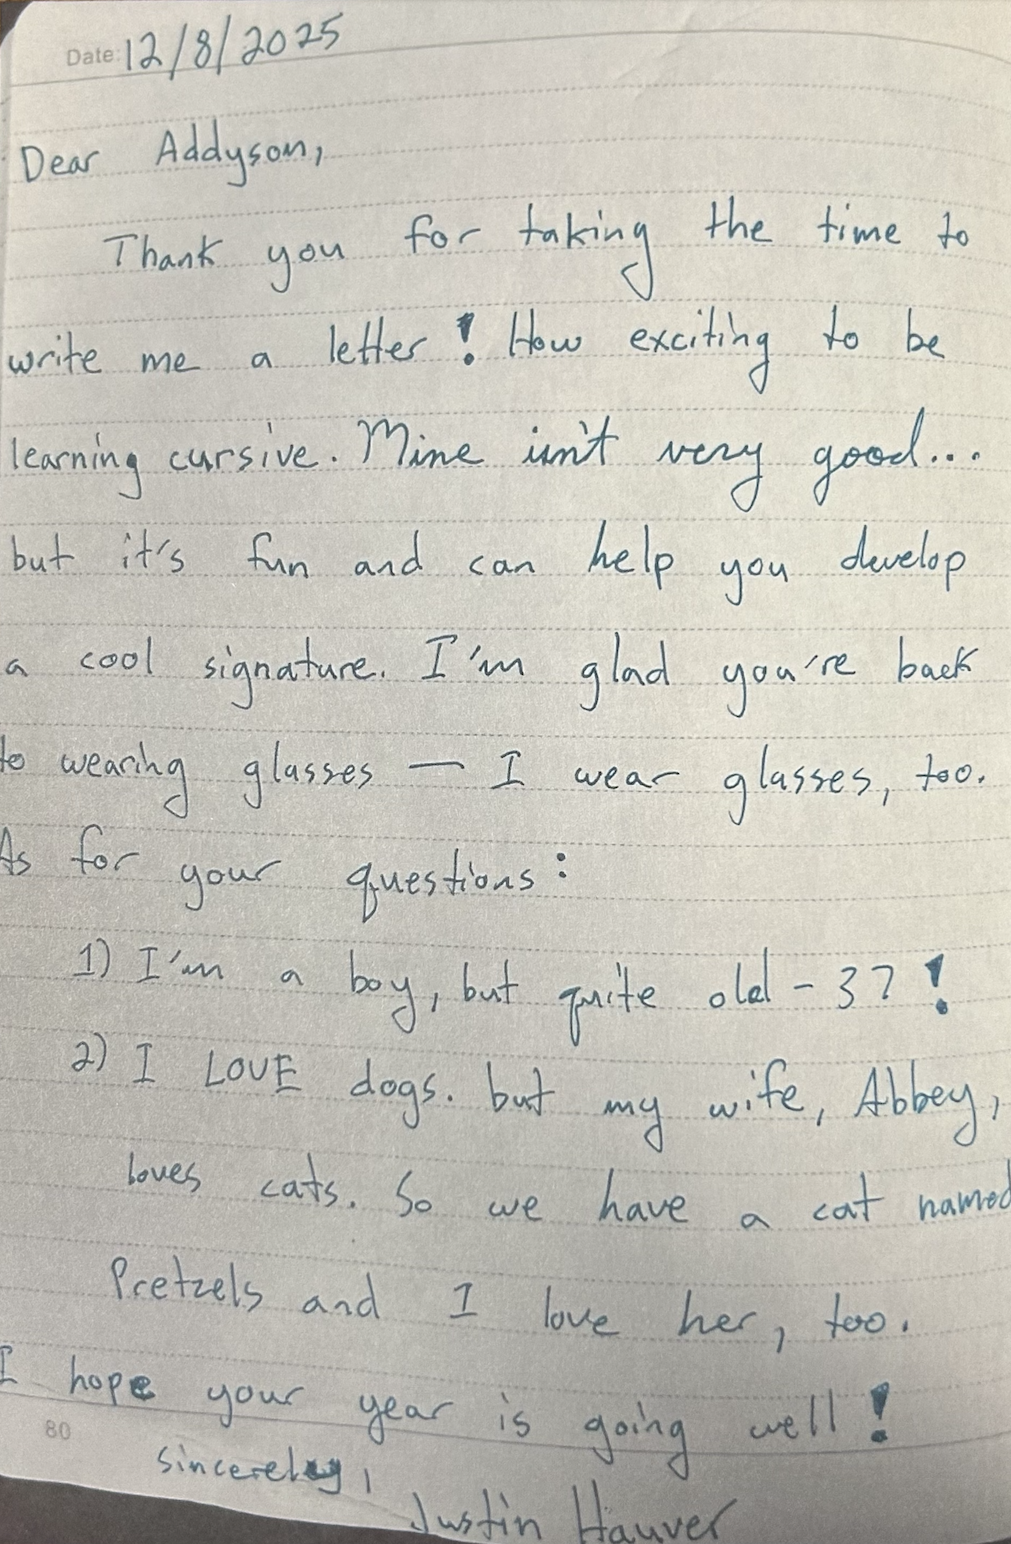 Date: 12/8/2025
Dear Addyson,
Thank you for taking the time to
write me a letter! How exciting to be
learning cursive. Mine isn't very good...
but it's fun and can help you develop
a cool signature. I'm glad you're back
to wearing glasses — I wear glasses, too.
As for your questions:
1) I'm a boy, but quite old - 37!
2) I LOVE dogs. but my wife, Abbey,
loves cats. So we have a cat named
Pretzels and I love her, too.
I hope your year is going well!
80
sincerely,
Justin Hauver